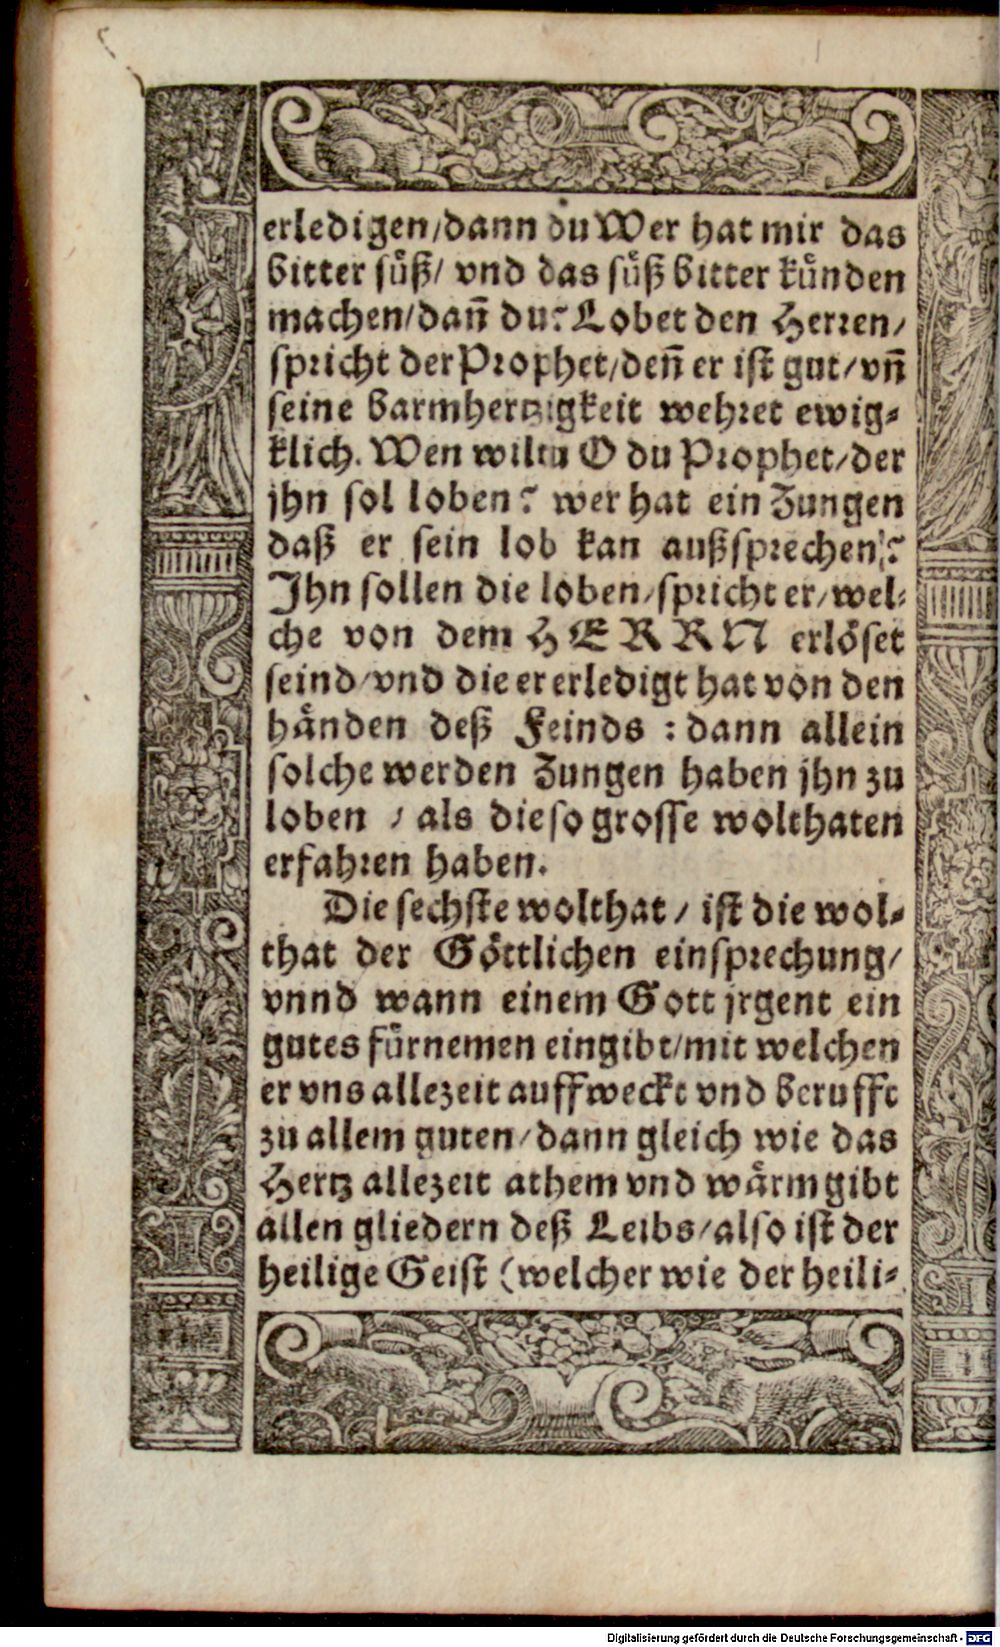 erledigen/dann du Wer hat mir das
bitter süß/ vnd das süß bitter künden
machen/dañ du? Lobet den Herren/
spricht der Prophet/deñ er ist gut/vñ
seine barmhertzigkeit wehret ewig-
klich. Wen wiltu O du Prophet/der
jhn sol loben? wer hat ein Zungen
daß er sein lob kan außsprechen?
Ihn sollen die loben/spricht er/wel-
che von dem HERRN erlöset
seind/vnd die er erledigt hat von den
händen deß Feinds : dann allein
solche werden Zungen haben jhn zu
loben / als die so grosse wolthaten
erfahren haben.
Die sechste wolthat/ ist die wol-
that der Göttlichen einsprechung/
vnnd wann einem Gott jrgent ein
gutes fürnemen eingibt/mit welchen
er vns allezeit auffweckt vnd berufft
zu allem guten/dann gleich wie das
Hertz allezeit athem vnd wärm gibt
allen gliedern deß Leibs/also ist der
heilige Geist (welcher wie der heili-
Digitalisierung gefördert durch die Deutsche Forschungsgemeinschaft - DFG